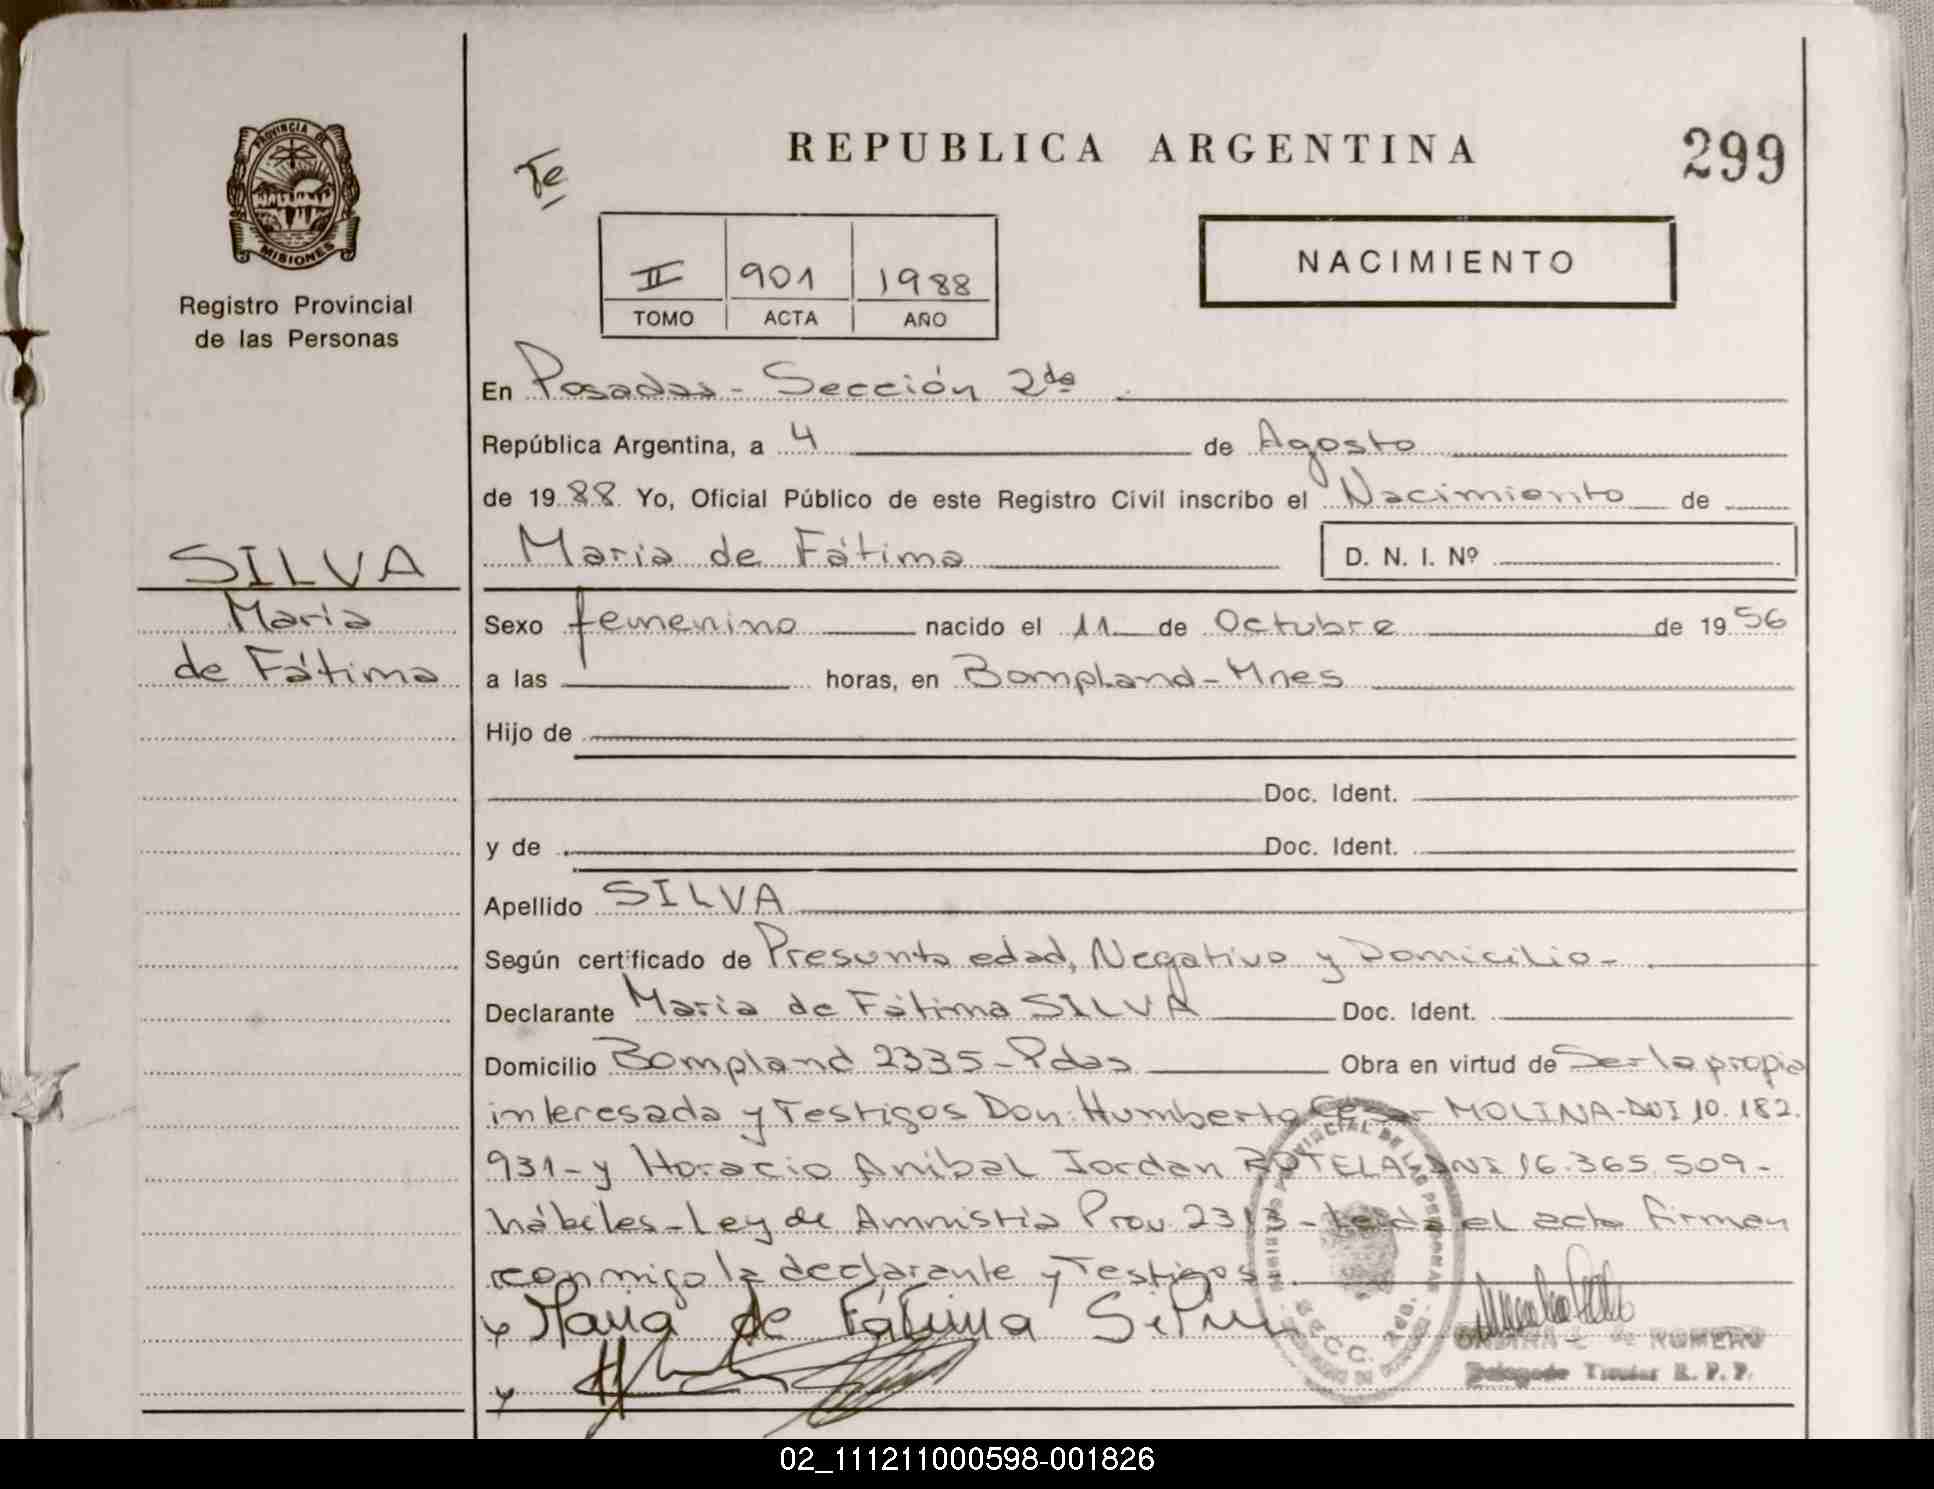 REPUBLICA ARGENTINA
299
Te
PROVINCIA DE
MISIONES
Registro Provincial
de las Personas
II 901 1988
TOMO ACTA AÑO
NACIMIENTO
En Posadas - Sección 2da
República Argentina, a 4 de Agosto
de 1988 Yo, Oficial Público de este Registro Civil inscribo el Nacimiento de
Maria de Fátima D. N. I. Nº
SILVA
Maria
de Fátima
Sexo femenino nacido el 11 de Octubre de 1956
a las horas, en Bompland - Mnes
Hijo de
Doc. Ident.
y de Doc. Ident.
Apellido SILVA
Según certificado de Presunta edad, Negativo y Domicilio -
Declarante Maria de Fátima SILVA Doc. Ident.
Domicilio Bompland 2335 - Pdas Obra en virtud de Ser la propia
interesada y Testigos Don: Humberto Cesar MOLINA - DNI 10.182.
931 - y Horacio Anibal Jordan ROTELA - DNI 16.365.509 -
hábiles - Ley de Amnistia Prov. 2313 - Leida el acta firman
conmigo la declarante y Testigos
Maria de Fátima Silva
ROMERO
Delegado Titular R. P. P.
02_111211000598-001826